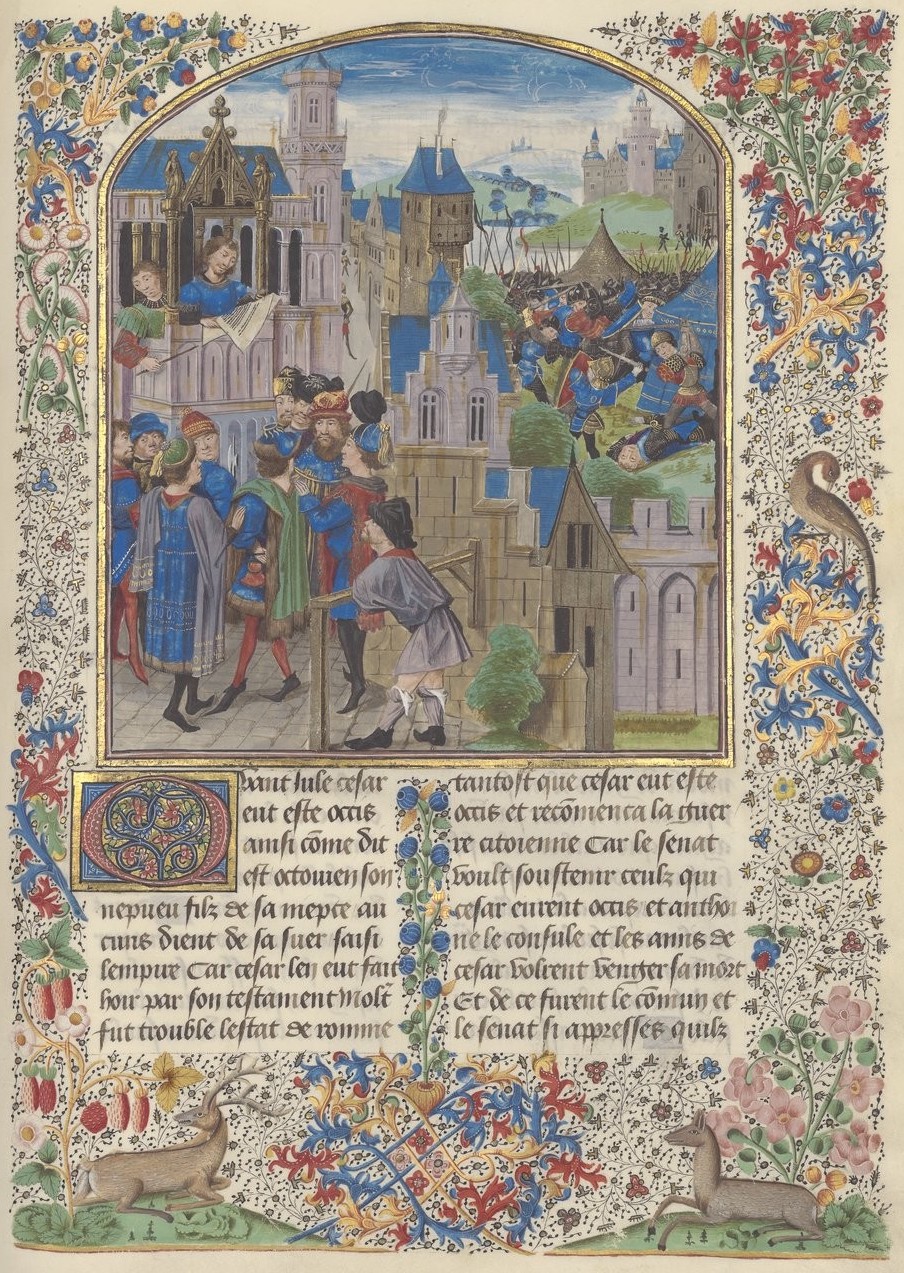 Quant Jule cesar
eut este occis
ainsi cõme dit
est octouien son
nepueu filz de sa niepce au
cuns dient de sa suer saisi
lempire Car cesar len eut fait
hoir par son testament Molt̃
fut trouble lestat de romme
tantost que cesar eut este
occis et recõmenca la guer
re citoienne Car le senat
voult soustenir ceulz qui
cesar eurent occis et antho
ne le consule et les amis de
cesar volrent venger sa mort
Et de ce furent le cõmun et
le senat si appresses quilz